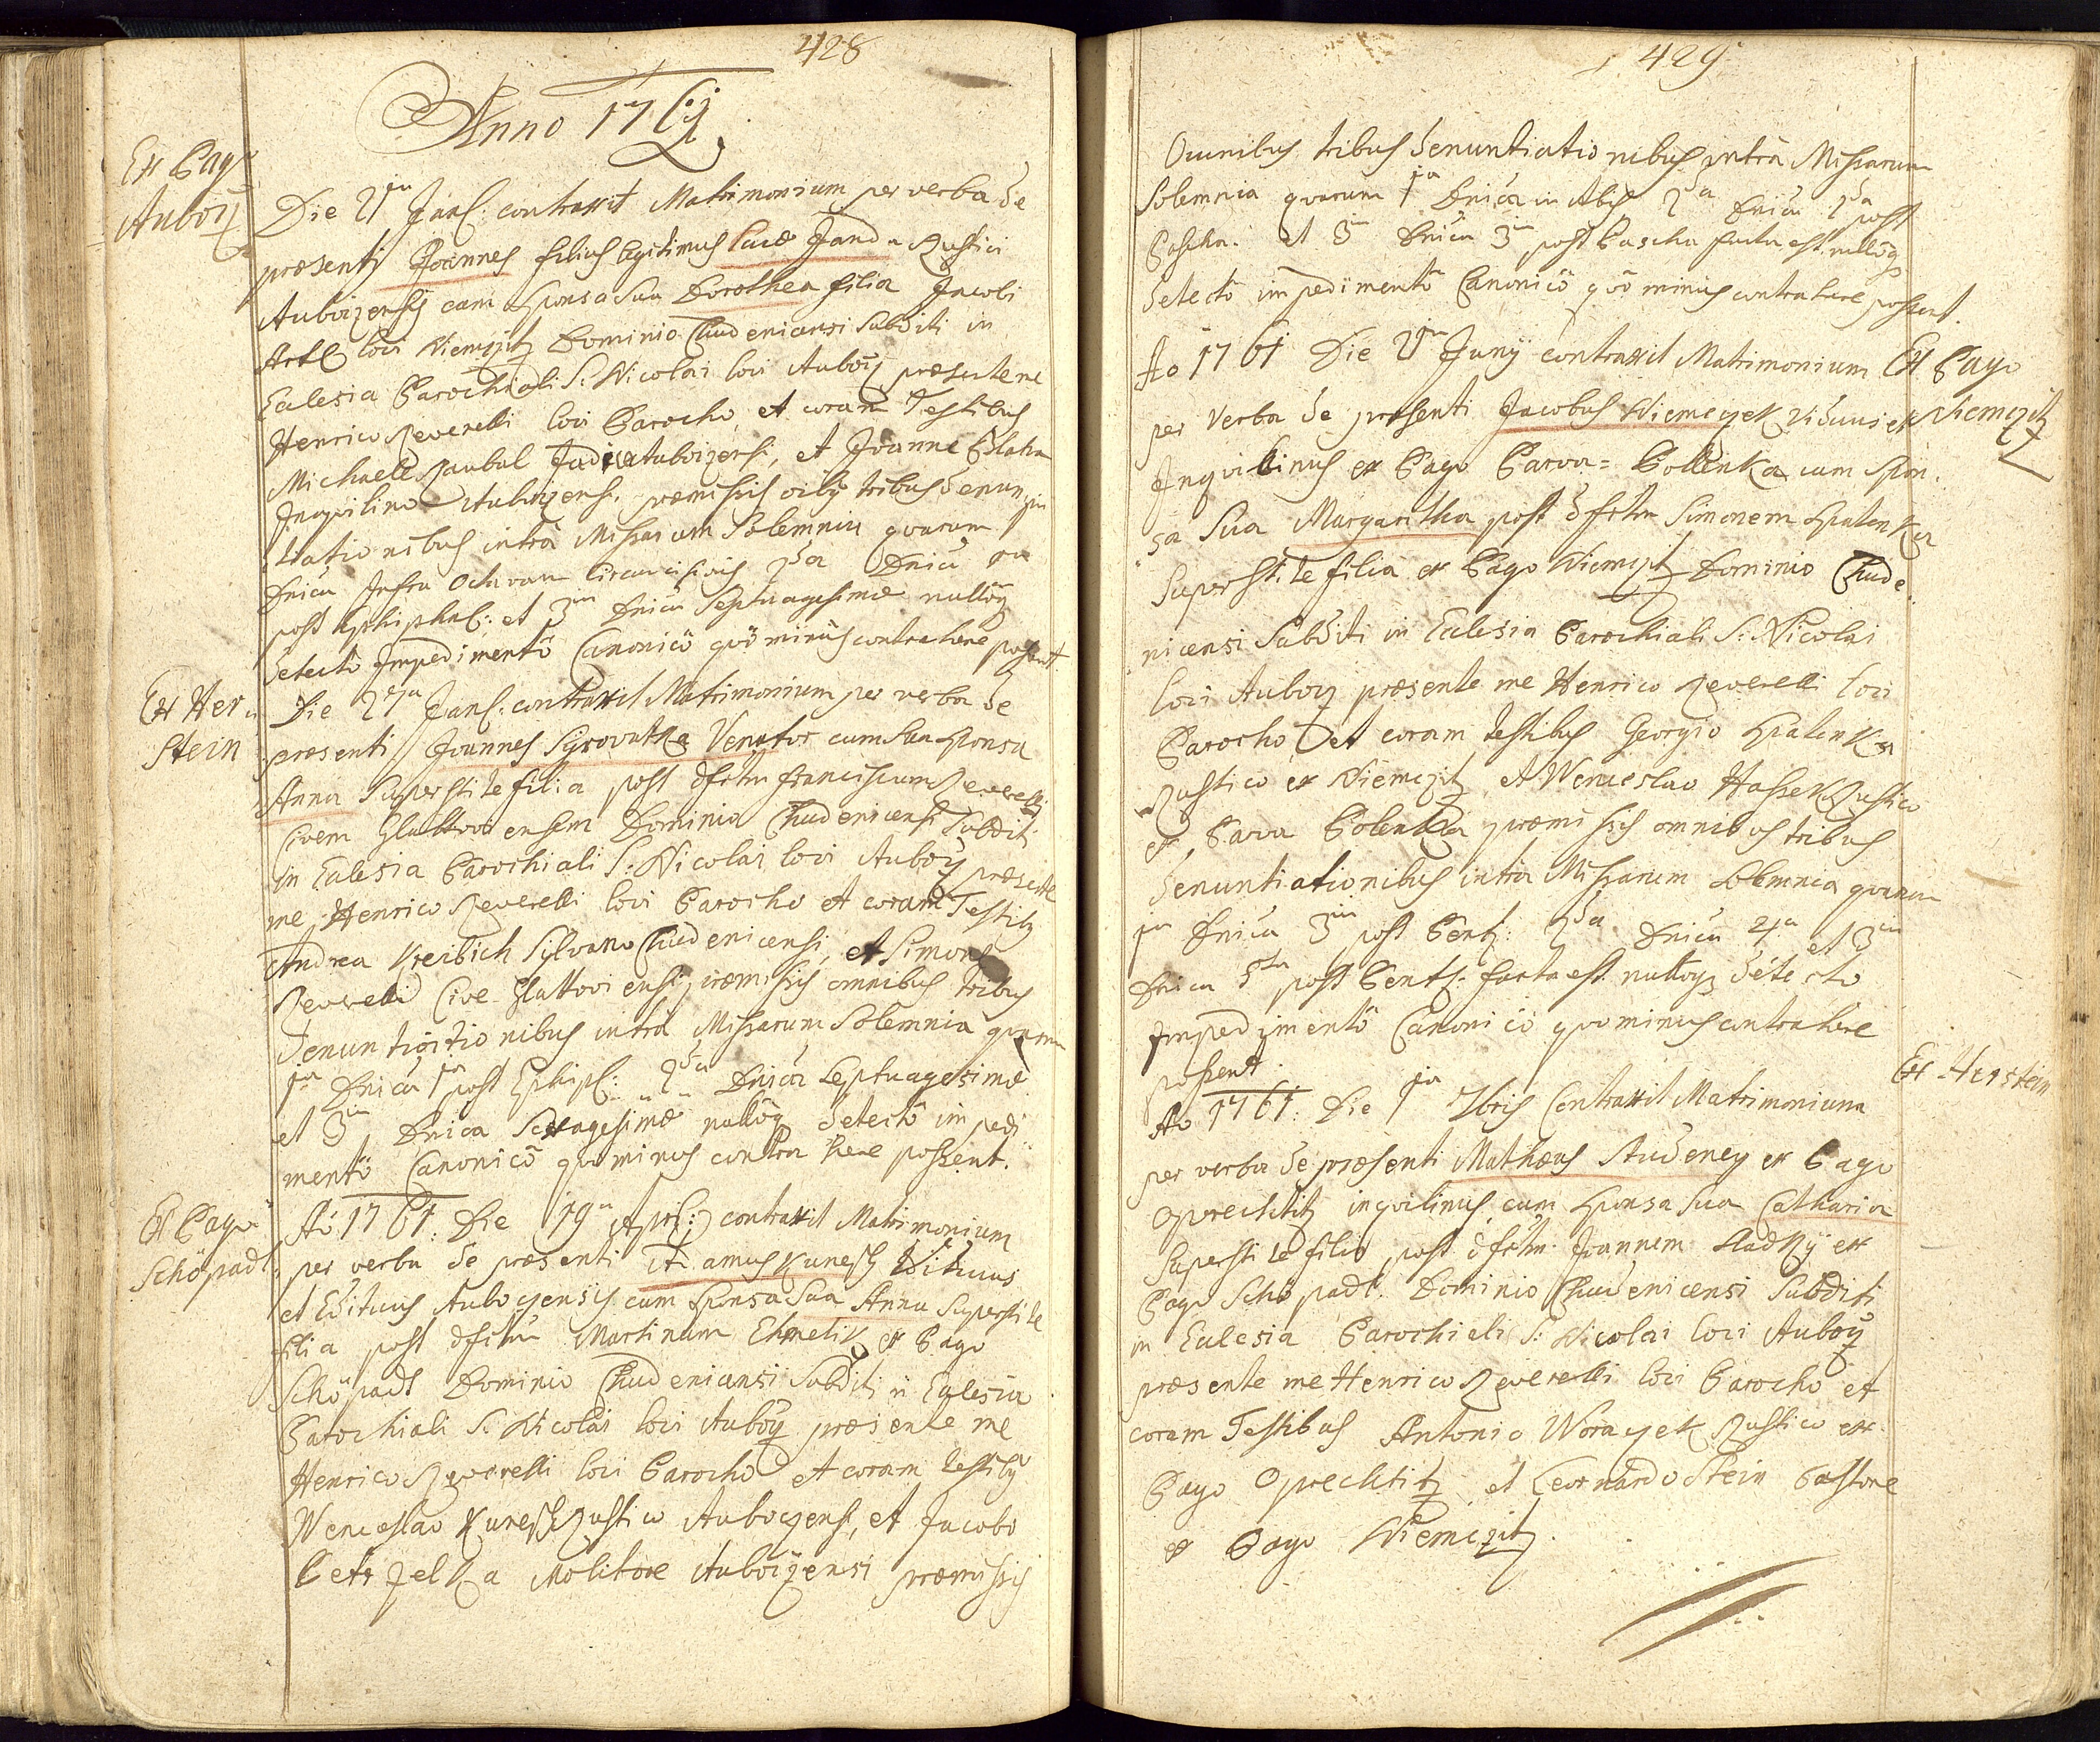 428
Anno 1761
Ex Pago
Auboz
Die 21ma Jan: contraxit Matrimonium per verba de
præsenti Joannes filius legitimus Lucæ Janda Rustici
Auboizensis cum sponsa sua Dorothea filia Jacobi
loci Niemczitz Dominio Chudenicensi Subditi in
Eclesia Parochiali S: Nicolai loci Auboz præsente me
Henrico Reverelli loci Parocho, et coram Testibus
Michaele Raubal Judice Auboizensi, et Joanne Blaha
Inquilino Auboizensi. præmissis oibus tribus denun
tiationibus intra Missarum Solemnia quarum 1ma
Dnica Infra Octavam Circumcisionis 2da Dnica
post Epiphan: et 3tia Dnica Septuagesimæ nulloq
detecto Impedimento Canonico quo minus contrahere possent
Ex Her
stein
Die 27ma Jan: contraxit Matrimonium per verba de
præsenti Joannes Syrovatka Venator cum sua sponsa
Anna Superstite filia post dfctm Franciscum Reverelli
Civem Glattoviensem Dominio Chudenicensi Subditi
in Eclesia Parochiali S: Nicolai loci Auboz præsente
me Henrico Reverelli loci Parocho et coram Testib
Andrea Kreibich Sylvano Chudenicensi, et Simone
Reverelli Cive Glattoviensi, præmissis omnibus tribus
denuntiationibus intra Missarum Solemnia quarum
1ma Dnica 1ma post Epiph: 2da Dnica Septuagesimæ
et 3tia Dnica Sexagesimæ nulloq detecto impedi
mento Canonico quo minus contrahere possent.
Ex Pago
Schöpadl
Ao 1761: Die 19na Aprl: contraxit Matrimonium
per verba de præsenti Adamus Kunesch Viduus
et Edituus Auboczensis cum sponsa sua Anna Superstite
filia post dfctm Martinum Chmelik ex Pago
Schöpadl Dominio Chudenicensi Subditi in Eclesia
Parochiali S. Nicolai loci Auboz præsente me
Henrico Reverelli loci Parocho et coram testib
Wenceslao Kunesch Rustico Auboczensi, et Jacobo
Petrzelka Molitore Auboizensi præmissis
429
Omnibus tribus denuntiationibus intra Missarum
Solemnia quarum 1ma Dnica in Albis 2da Dnica 2da post
Pascha. et 3tia Dnica 3tia post Pascha facta est. nulloq
detecto impedimento Canonico quo minus contrahere possent.
Ex Pago
Niemczitz
Ao 1761 Die 21ma Juny contraxit Matrimonium
per Verba de præsenti Jacobus Niemeczek Viduus et
Inquilinus ex Pago Parva= Pollenka cum spon
sa sua Margaritha post dfctm Simonem Spalenka
Superstite filia ex Pago Niemczitz Dominio Chude
nicensi Subditi in Eclesia Parochiali S: Nicolai
loci Auboz præsente me Henrico Reverelli loci
Parocho et coram testibus Georgio Spalenka
Rustico ex Niemczitz, et Wenceslao Haszek Rustico
ex Parva Polenka præmissis omnibus tribus
denuntiationibus intra Missarum Solemnia quarum
1ma Dnica 3tia post Pent: 2da Dnica 4ta et 3tia
Dnica 5ta post Pent: facta est. nulloq detecto
Impedimento Canonico quo minus contrahere
possent.
Ex Herstein
Ao 1761: Die 1ma 7bris Contraxit Matrimonium
per verba de præsenti Mathæus Audeney ex Pago
Oprechtitz inquilinus, cum sponsa sua Catharia
Superstite filia post dfctm Joannem Sladky ex
Pago Schöpadl. Dominio Chudenicensi Subditi
in Eclesia Parochiali S: Nicolai loci Auboz
præsente me Henrico Reverelli loci Parocho et
coram Testibus Antonio Woraczek Rustico ex
Pago Oprechtitz et Leornardo Stein Pastore
ex Pago Niemczitz.